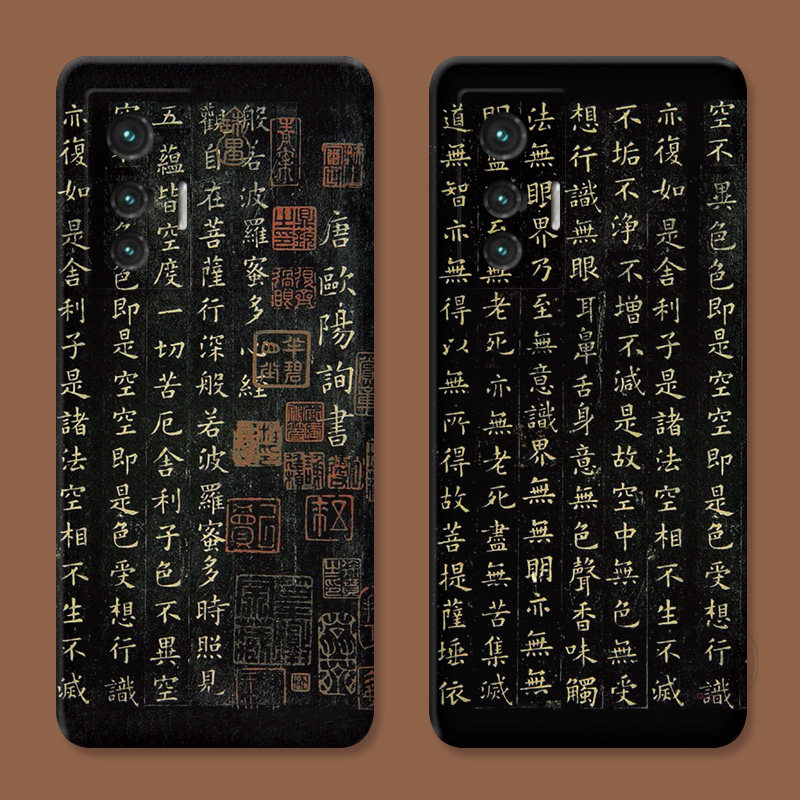 唐歐陽詢書
般若波羅蜜多心經
觀自在菩薩行深般若波羅蜜多時照見
五蘊皆空度一切苦厄舍利子色不異空
空不色即是空空即是色受想行識
亦復如是舍利子是諸法空相不生不滅
空不異色色即是空空即是色受想行識
亦復如是舍利子是諸法空相不生不滅
不垢不淨不增不減是故空中無色無受
想行識無眼耳鼻舌身意無色聲香味觸
法無眼界乃至無意識界無無明亦無無
明盡至無老死亦無老死盡無苦集滅
道無智亦無得以無所得故菩提薩埵依